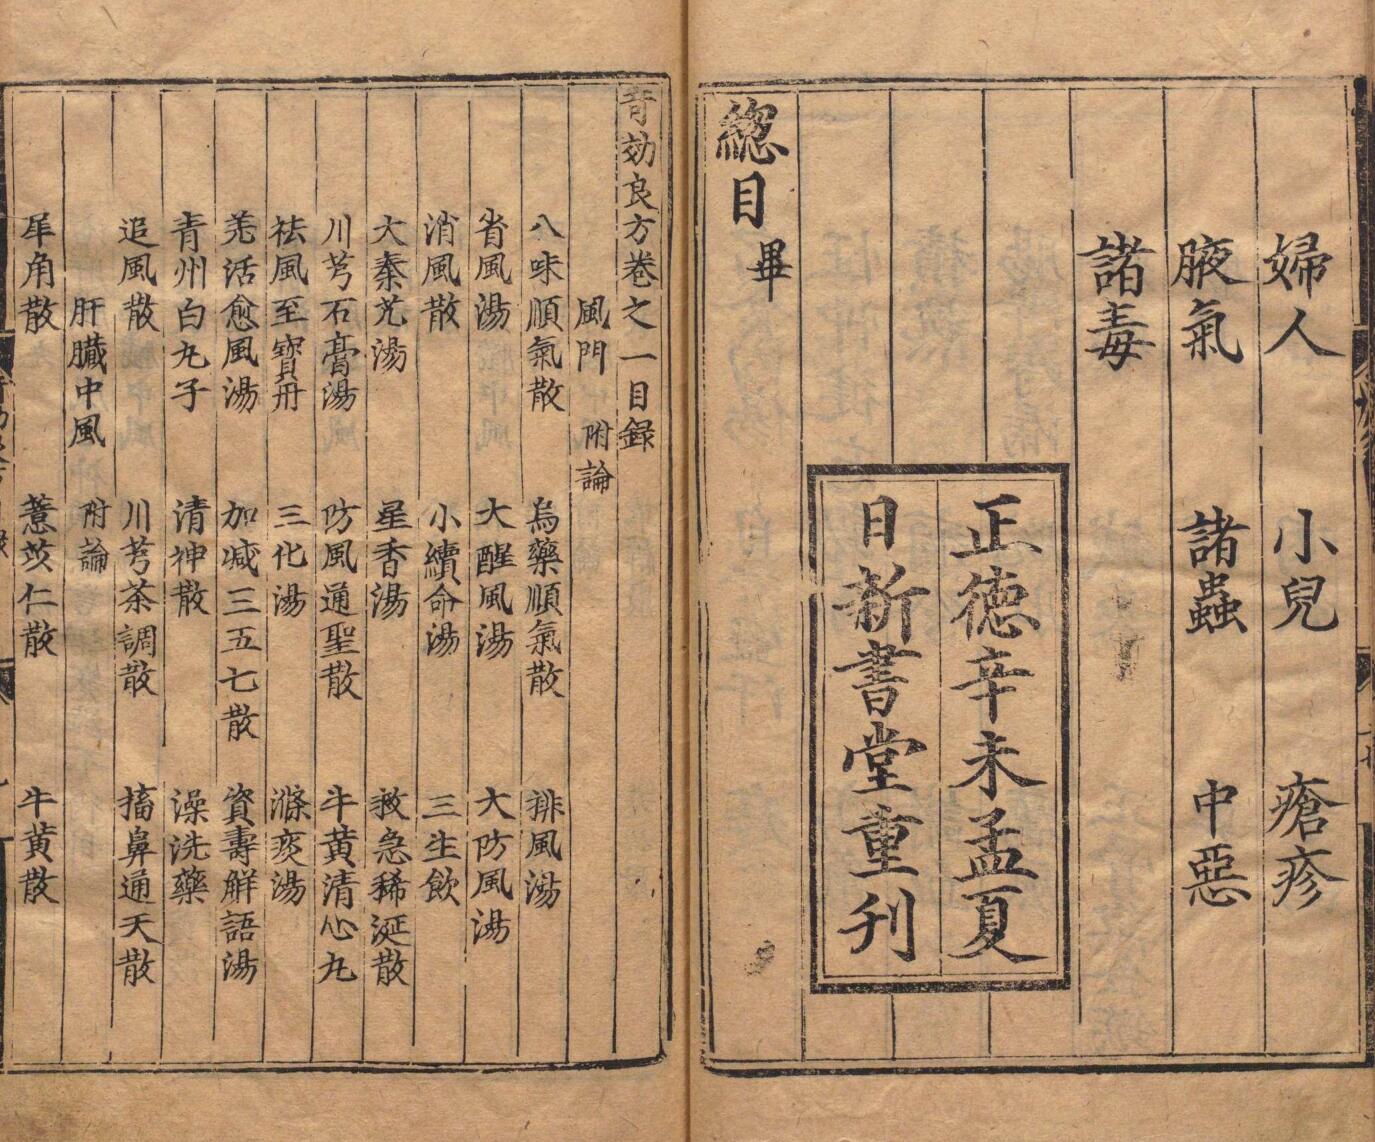 婦人　小兒　瘡疹
腋氣　諸蟲　中惡
諸毒
正德辛未孟夏
日新書堂重刋
總目畢
奇効良方卷之一目録
風門　附論
八味順氣散　烏藥順氣散　排風湯
省風湯　大醒風湯　大防風湯
消風散　小續命湯　三生飲
大秦艽湯　星香湯　救急稀涎散
川芎石膏湯　防風通聖散　牛黄清心丸
祛風至寶丹　三化湯　滌痰湯
羌活愈風湯　加减三五七散　資壽解語湯
青州白丸子　清神散　澡洗藥
追風散　川芎茶調散　搐鼻通天散
肝臟中風　附論
犀角散　薏苡仁散　牛黄散